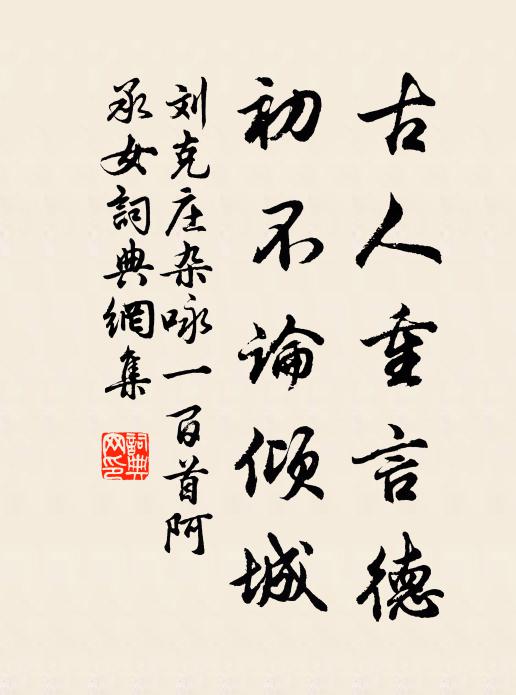 古人重言德
初不論傾城
刘克庄杂咏一百首阿
承女詞典網集
詞典網印